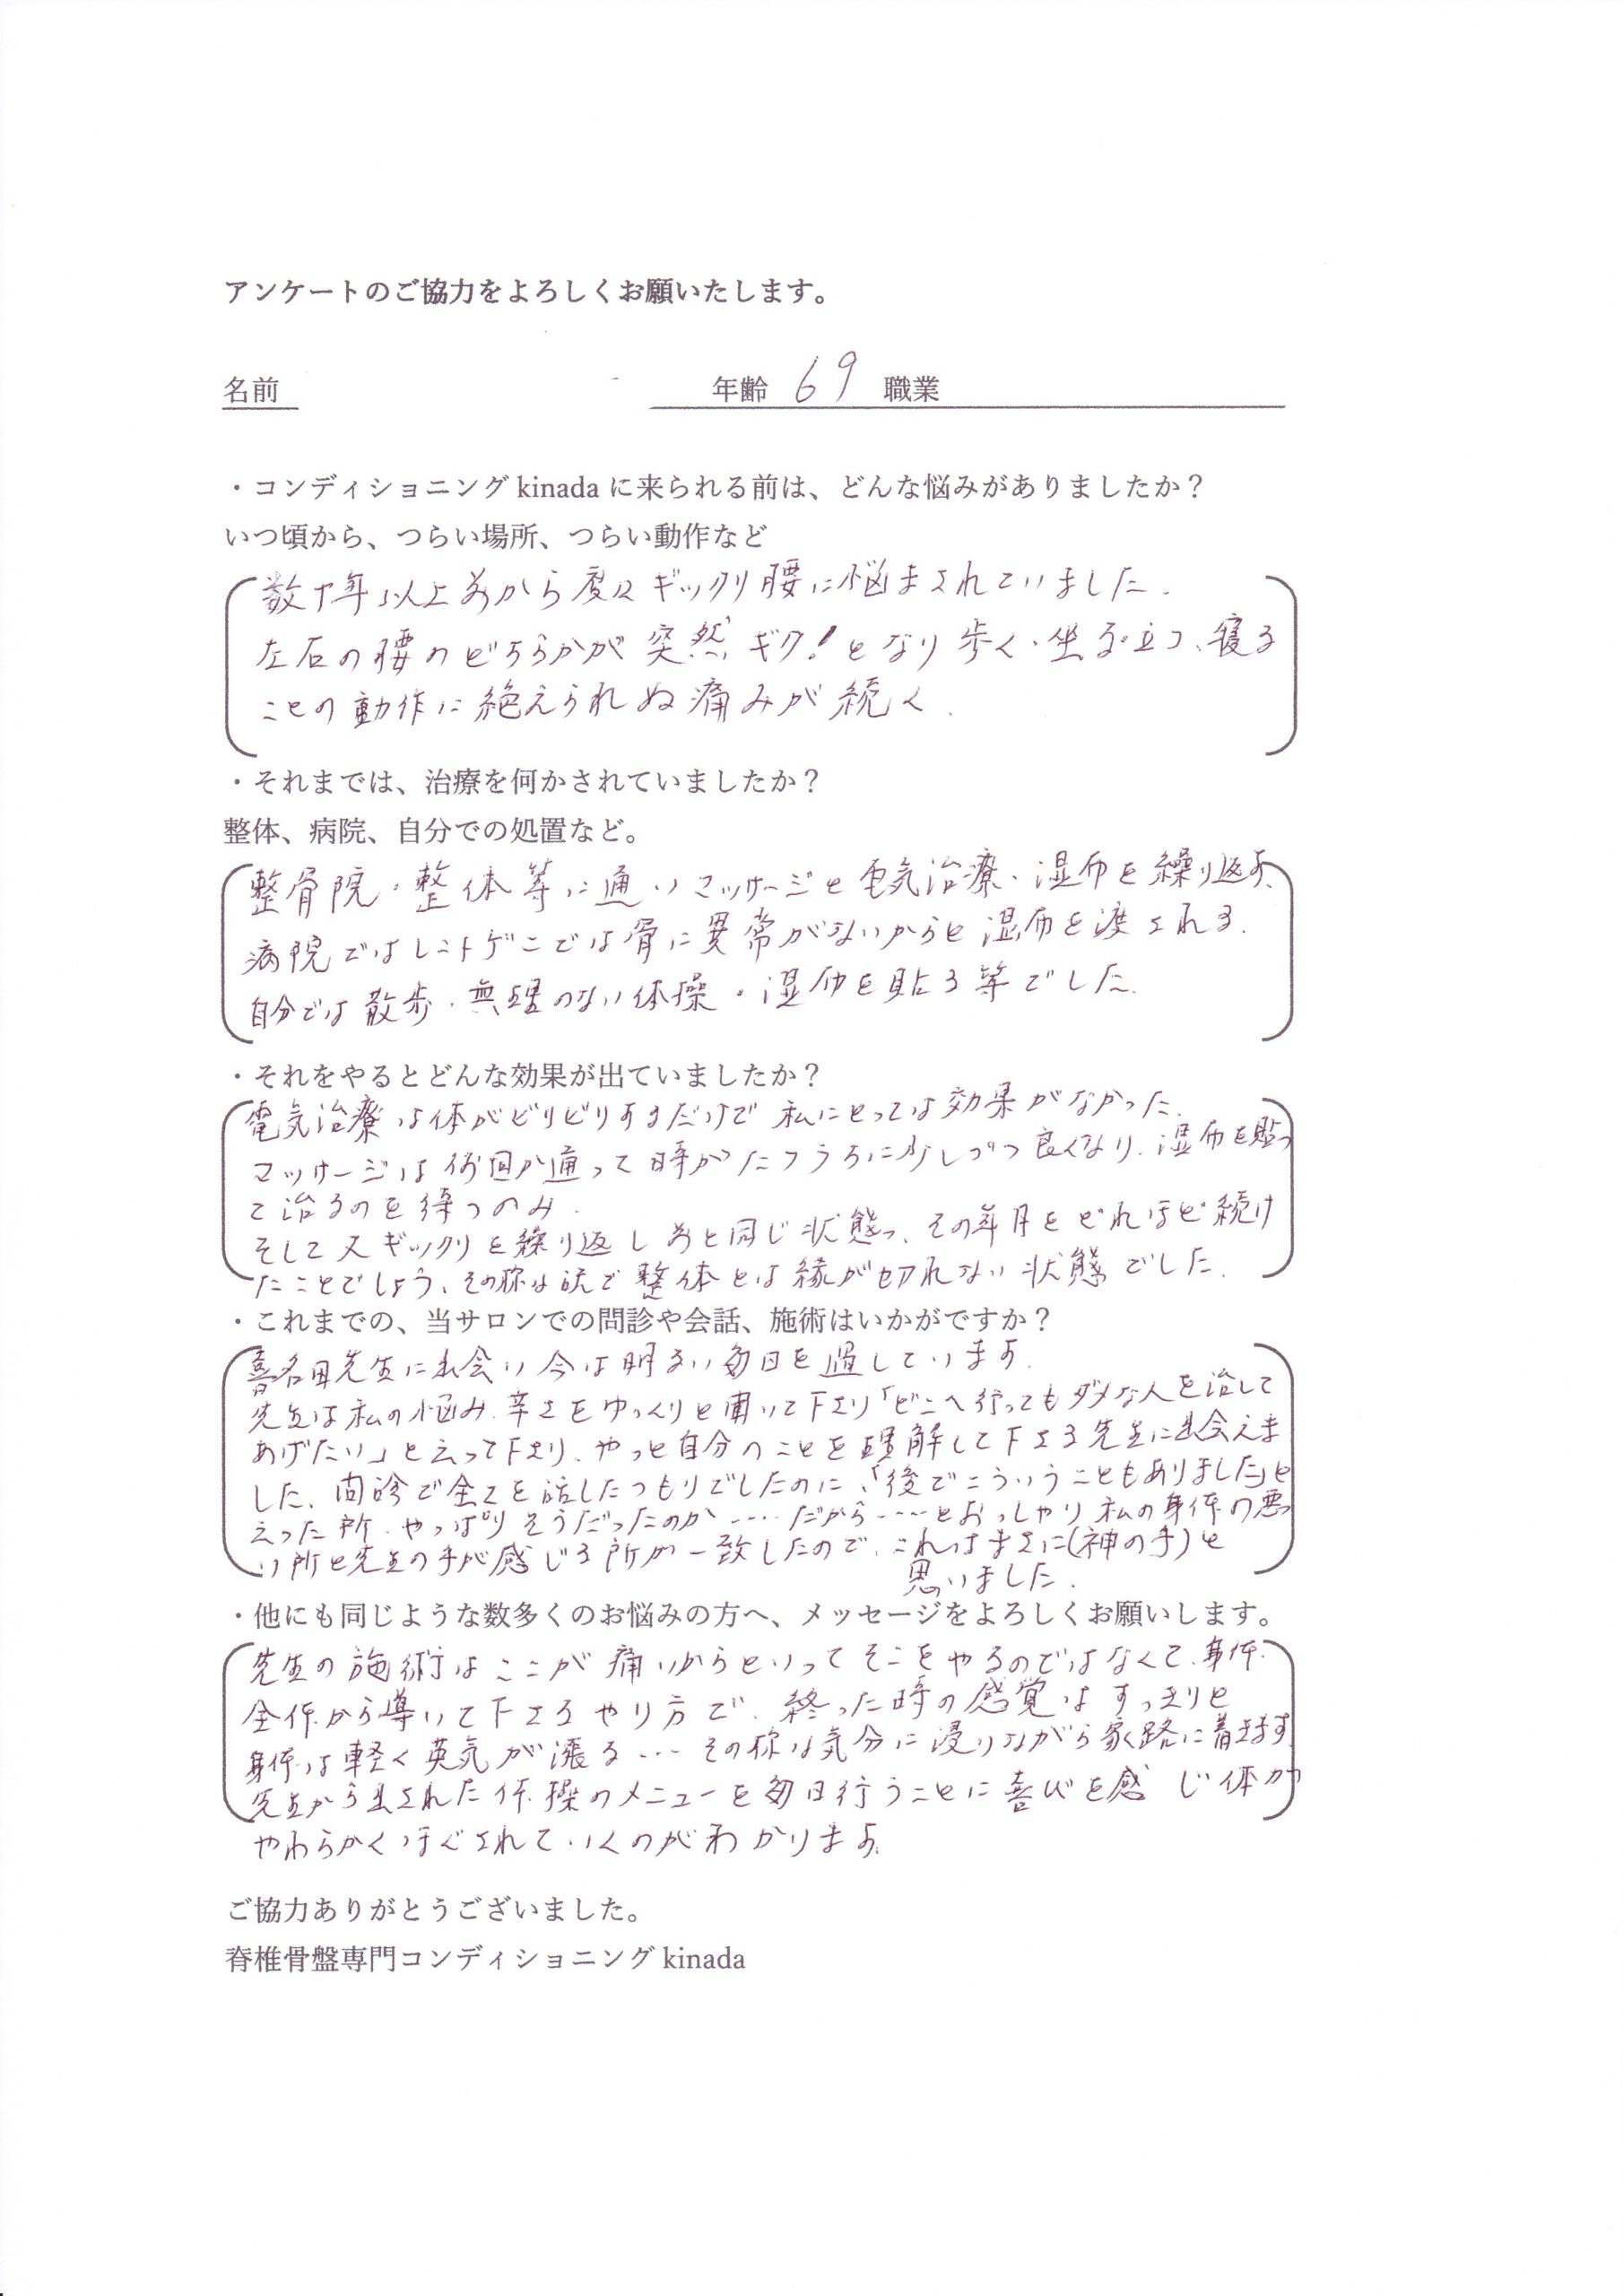 アンケートのご協力をよろしくお願いたします。
名前 年齢 69 職業
・コンディショニング kinada に来られる前は、どんな悩みがありましたか？
いつ頃から、つらい場所、つらい動作など
数十年以上前から度々ギックリ腰に悩まされていました.
左右の腰のどちらかが突然ギク！となり歩く・坐る・立つ、寝る
ことの動作に絶えられぬ痛みが続く.
・それまでは、治療を何かされていましたか？
整体、病院、自分での処置など。
整骨院・整体等に通いマッサージと電気治療・湿布を繰り返す、
病院ではレントゲンでは骨に異常がないからと湿布を渡される.
自分では散歩・無理のない体操・湿布を貼る等でした.
・それをやるとどんな効果が出ていましたか？
電気治療は体がビリビリするだけで私にとっては効果がなかった.
マッサージは何回か通って時がたつうちに少しづつ良くなり、湿布を貼っ
て治るのを待つのみ.
そして又ギックリを繰り返し前と同じ状態っ、その年月をどれほど続け
たことでしょう、その称な訳で整体とは縁が切れない状態でした.
・これまでの、当サロンでの問診や会話、施術はいかがですか？
喜名田先生に出会い今は明るい毎日を過しています.
先生は私の悩み、辛さをゆっくりと聞いて下さり「どこへ行ってもダメな人を治して
あげたい」と云って下さり、やっと自分のことを理解して下さる先生に出会えま
した、問診で全てを話したつもりでしたのに、「後でこういうこともありました」と
云った所、やっぱりそうだったのか……だから……とおっしゃり私の身体の悪
い所と先生の手が感じる所が一致したので、これはまさに(神の手)と
思いました.
・他にも同じような数多くのお悩みの方へ、メッセージをよろしくお願いします。
先生の施術はここが痛いからといってそこをやるのではなくて、身体
全体から導いて下さるやり方で、終った時の感覚はすっきりと
身体は軽く英気が漲る…その称な気分に浸りながら家路に着きます.
先生から出された体操のメニューを毎日行うことに喜びを感じ体が
やわらかくほぐされていくのがわかります.
ご協力ありがとうございました。
脊椎骨盤専門コンディショニング kinada